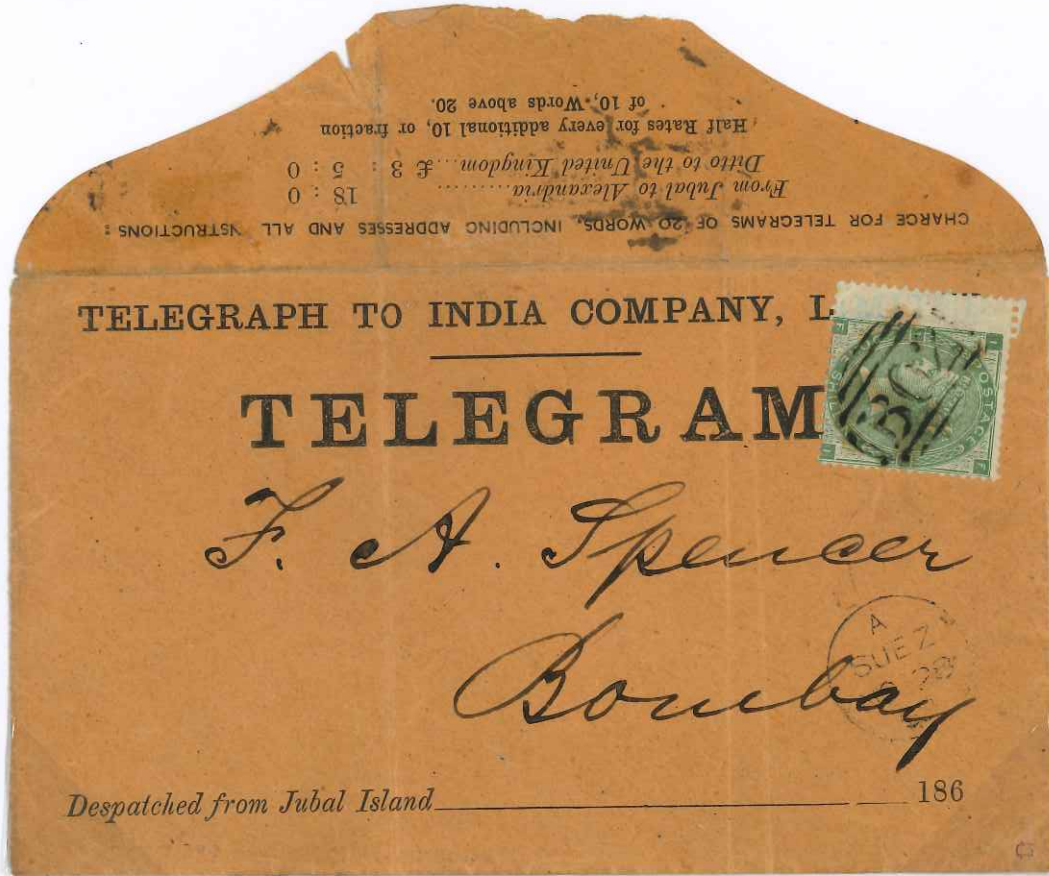 CHARGE FOR TELEGRAMS OF 20 WORDS, INCLUDING ADDRESSES AND ALL NSTRUCTIONS :
From Jubal to Alexandria.......... 18 : 0
Ditto to the United Kingdom....£ 3 : 5 : 0
Half Rates for every additional 10, or fraction
of 10, Words above 20.
TELEGRAPH TO INDIA COMPANY, L
TELEGRAM
POSTAGE
F. A. Spencer
Bombay
A
SUEZ
28
Despatched from Jubal Island 186